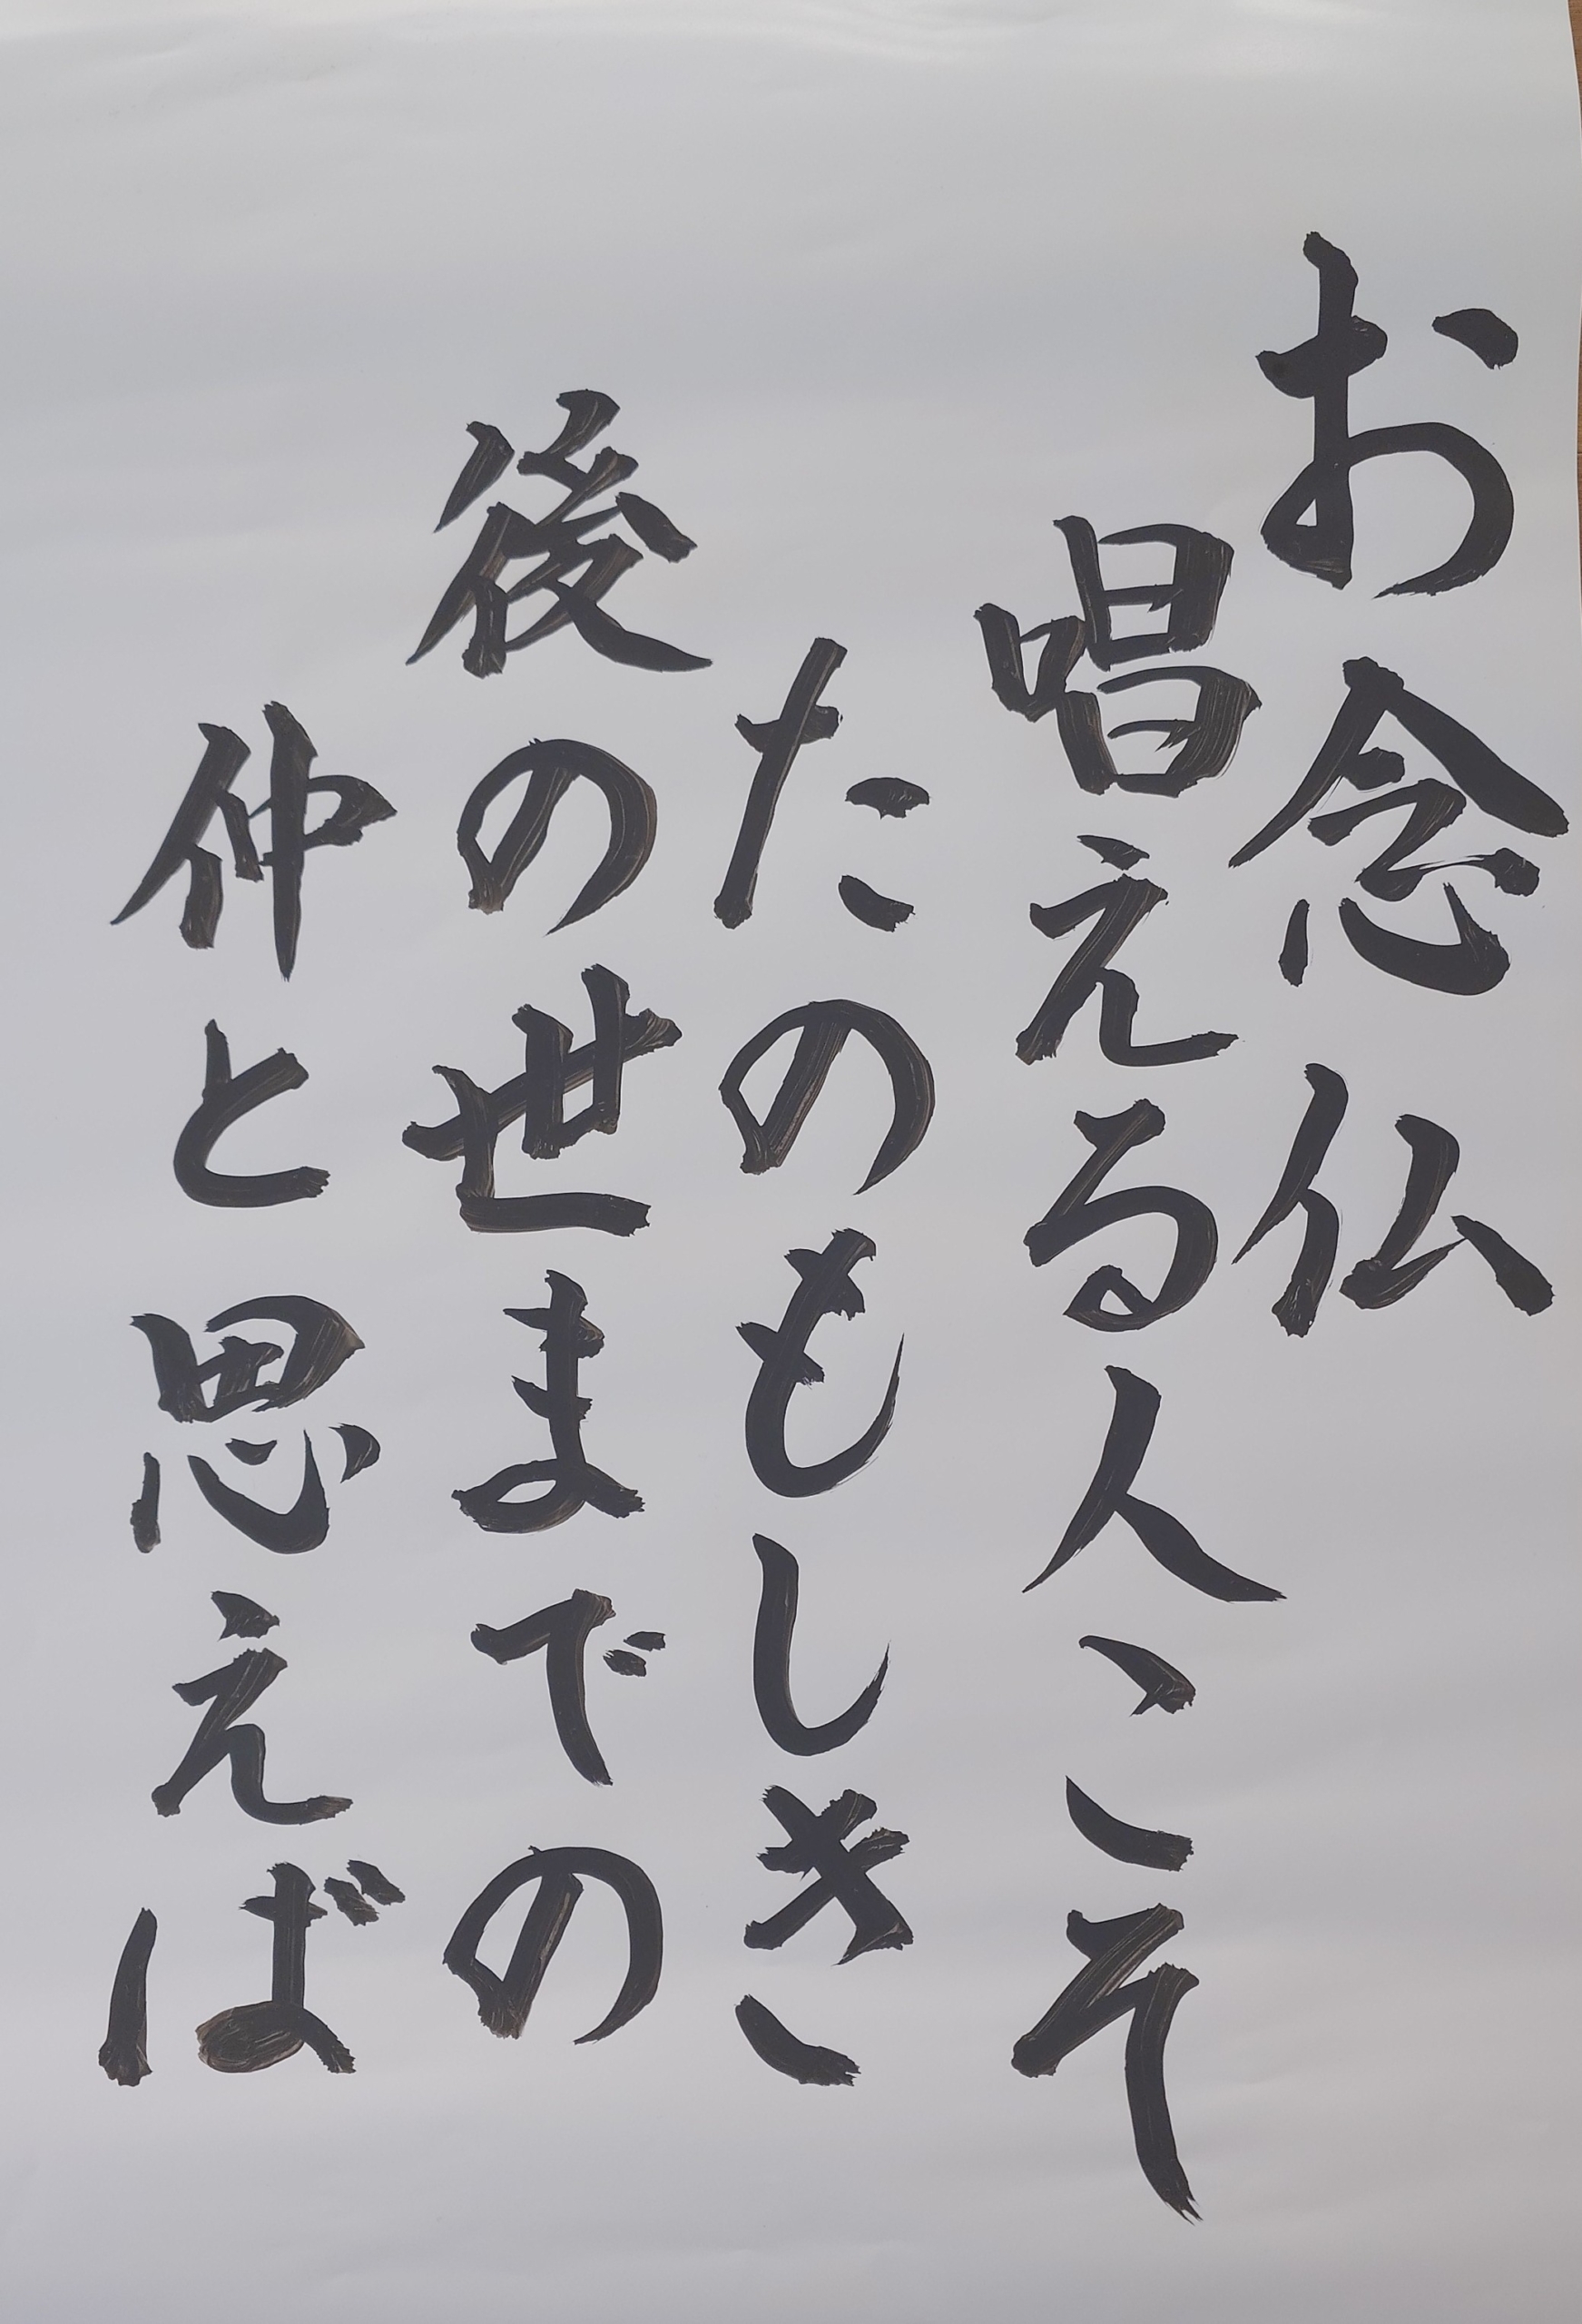 お念仏
唱える人こそ
たのもしき
後の世までの
仲と思えば